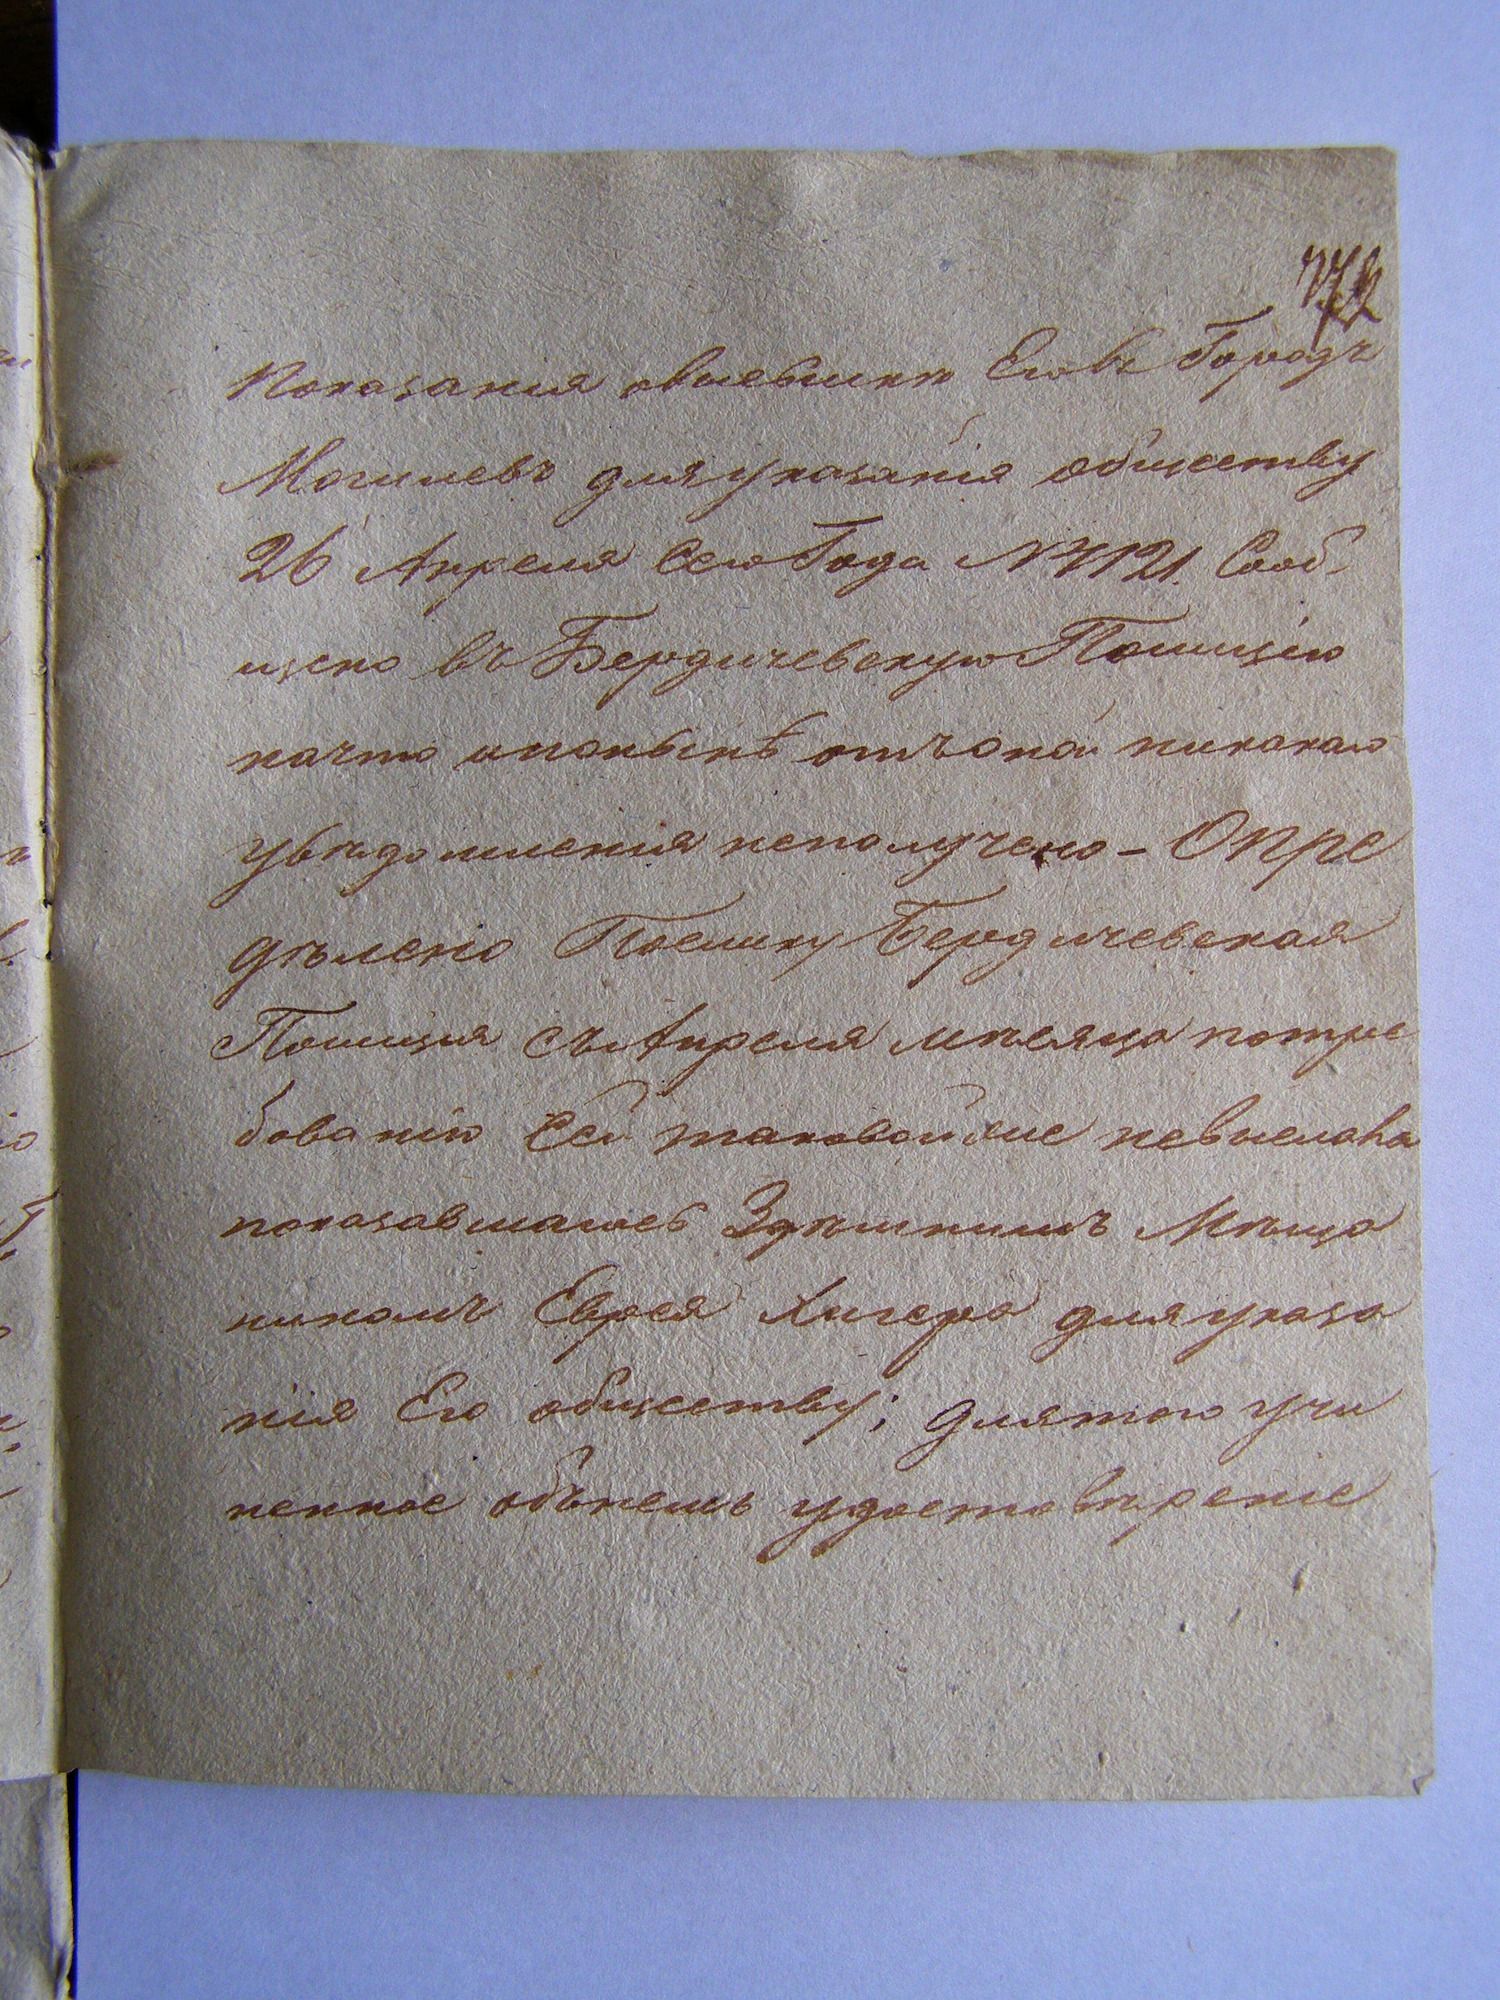 показания овысылкѣ Его въ Городъ
Могилевъ для указанія обществу
26 Апреля сего Года № 4121. Сооб-
щено въ Бердичевскую Полицію
начто и понынѣ отъ оной никакаго
увѣдомления неполучено – Опре
дѣлено Поелику Бердичевская
Полиция съ Апреля мѣсяца потре
бованію сей таковой же невыслала
показавшагось Здѣшнимъ Мѣща
ниномъ Еврея Хигера для указа
нія Его обществу; для того учи
ненное объ немъ удостовѣреніе